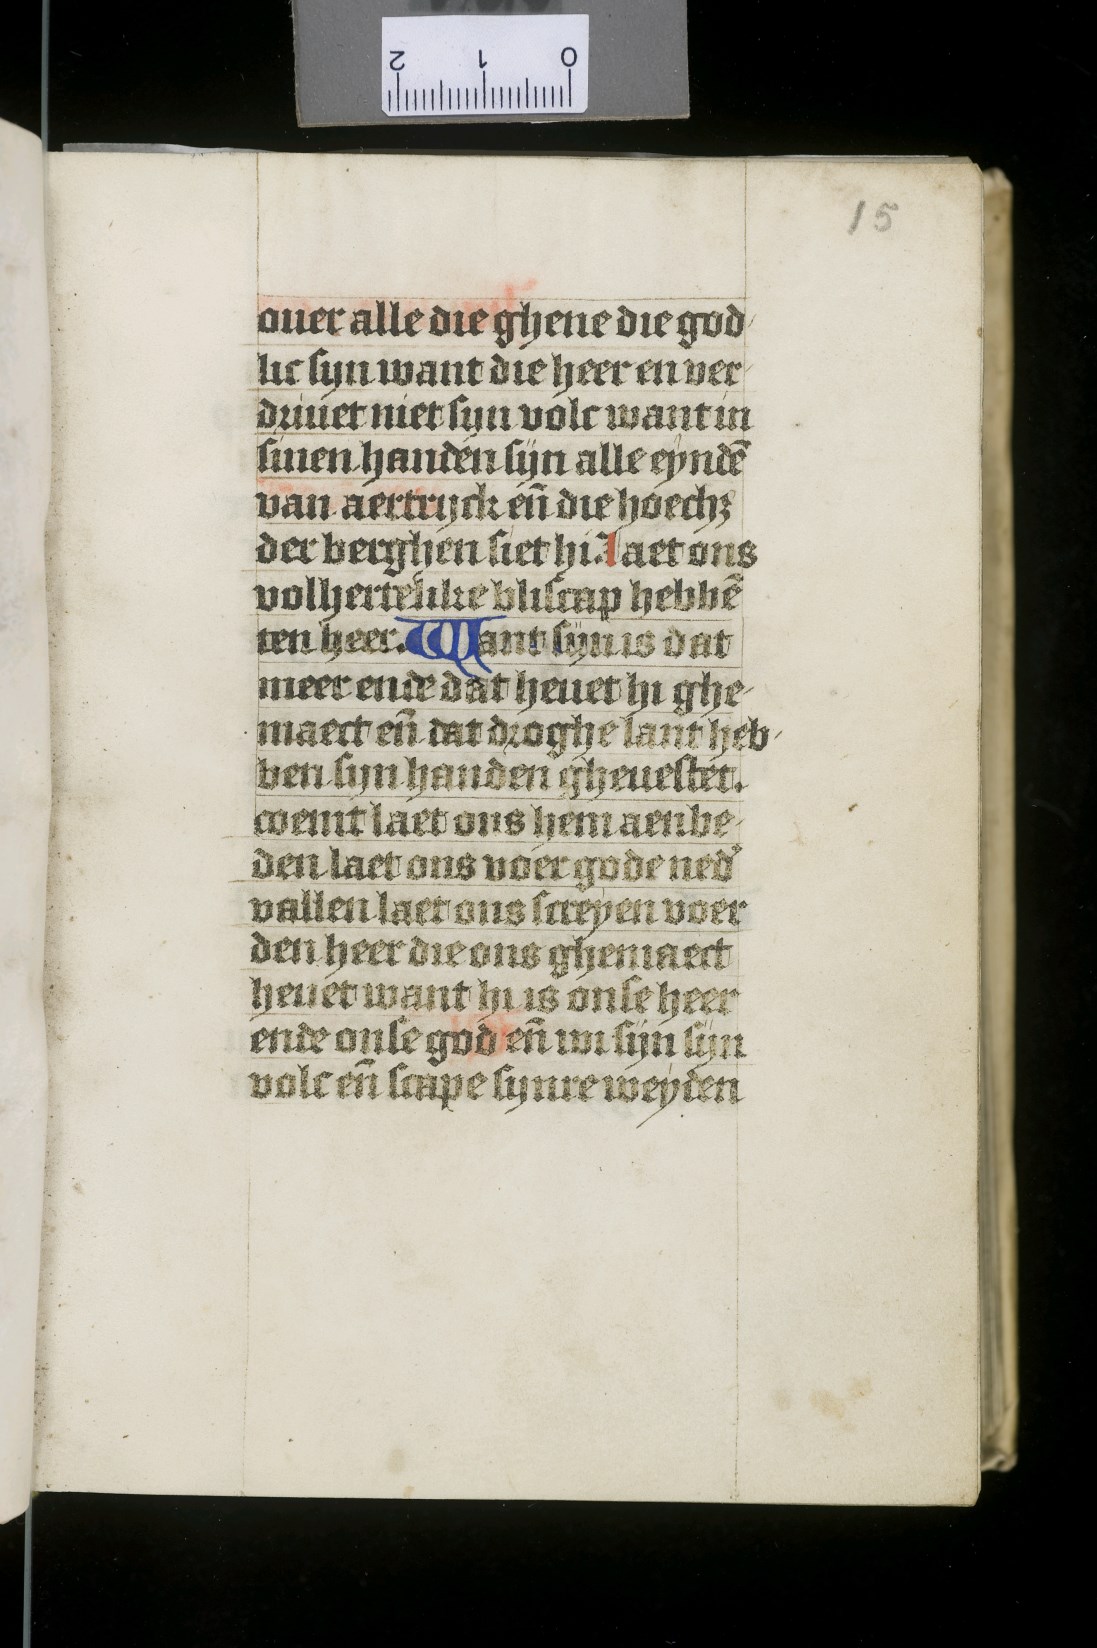 15
ouer alle die ghene die god
lic syn want die heer en ver
driuet niet syn volc want in
sinen handen sijn alle eyndē
van aertryck eñ die hoechꝫ
der berghen siet hi. Laet ons
volhertelike bliscap hebbē
ten heer. Want sijn is dat
meer ende dat heuet hi ghe
maect eñ dat droghe lant heb
ben syn handen gheuestet.
coemt laet ons hem aenbe
den laet ons voer gode ned'
vallen laet ons screyen voer
den heer die ons ghemaect
heuet want hi is onse heer
ende onse god eñ wi sijn sijn
volc eñ scape synre weyden
2 1 0